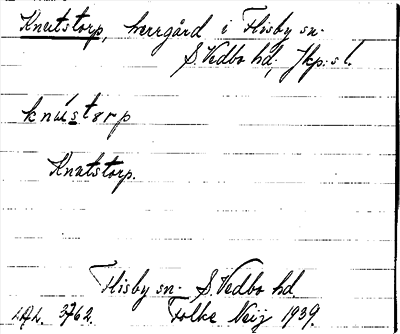 Knutstorp, herrgård i Flisby sn.
S. Vedbo hd, Jkp:s l.
knústorp
Knutstorp.
Flisby sn. S. Vedbo hd
3762. Folke Neij 1939.